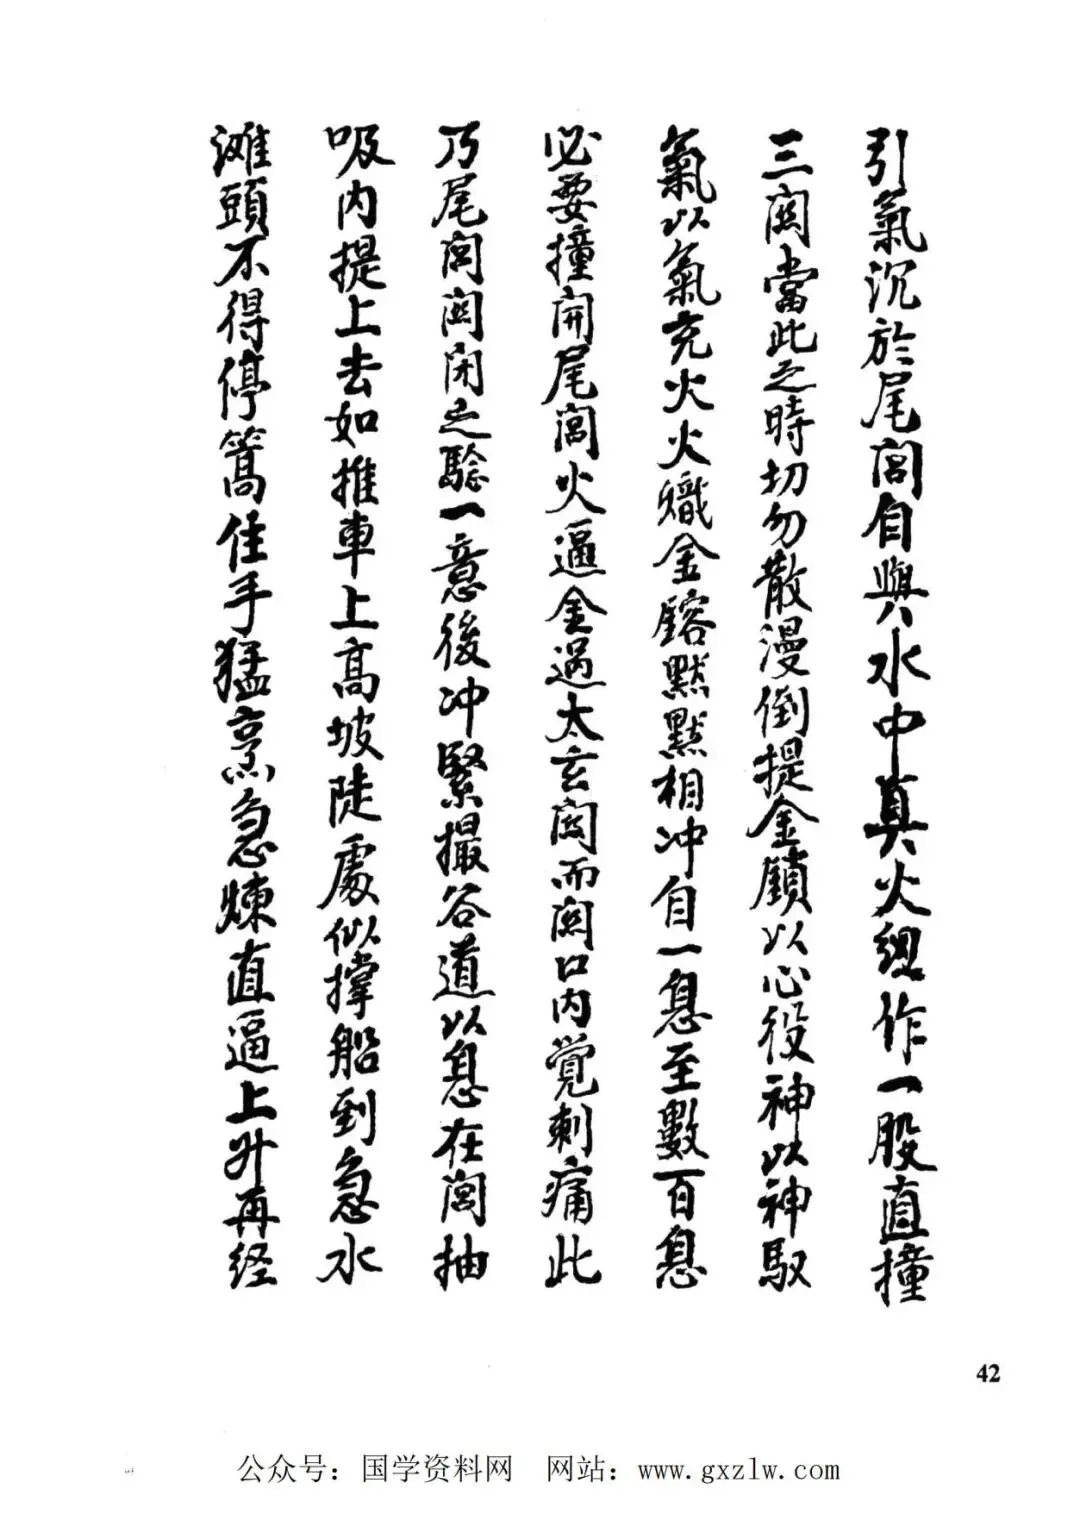 引氣沉於尾閭自與水中真火總作一股直撞
三関當此之時切勿散漫倒提金鎖以心役神以神馭
氣以氣充火火熾金鎔默默相冲自一息至數百息
必要撞開尾閭火逼金過太玄関而関口内覺刺痛此
乃尾閭関開之驗一意後冲緊撮谷道以息在閭抽
吸内提上去如推車上高坡陡處似撐船到急水
滩頭不得停篙住手猛烹急煉直逼上升再经
42
公众号：国学资料网　网站：www.gxzlw.com